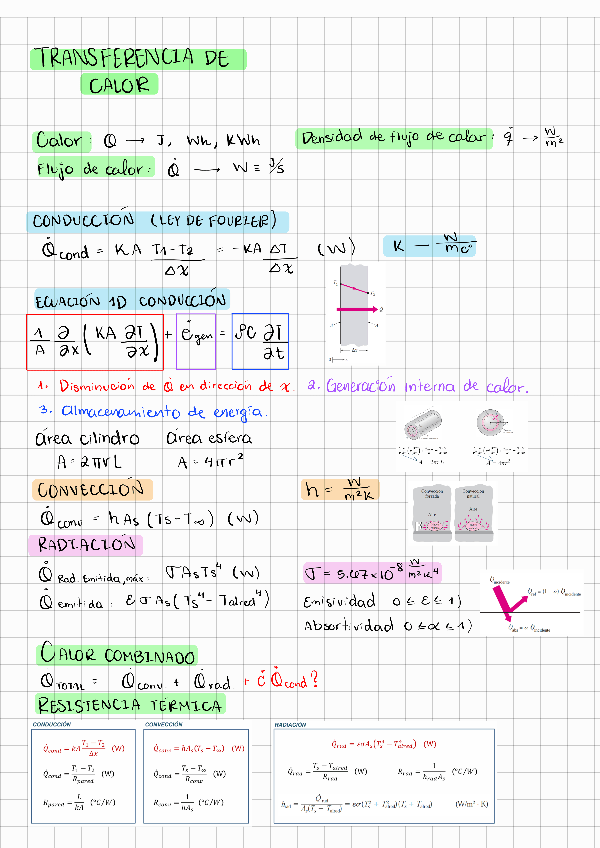 TRANSFERENCIA DE
CALOR
Calor: Q → J, Wh, KWh
Densidad de flujo de calor: q̇ → W/m²
Flujo de calor: Q̇ → W = J/s
CONDUCCIÓN (LEY DE FOURIER)
Q̇cond = KA (T1-T2)/Δx = -KA ΔT/Δx (W)
K — W/mC°
ECUACIÓN 1D CONDUCCIÓN
1/A ∂/∂x (KA ∂T/∂x) + ėgen = ρC ∂T/∂t
1. Disminución de Q̇ en dirección de x.
2. Generación interna de calor.
3. Almacenamiento de energía.
área cilindro área esfera
A = 2πrL A = 4πr²
CONVECCIÓN
h = W/m²K
Q̇conv = hAs (Ts-T∞) (W)
Convección forzada
Aire
RADIACIÓN
Q̇Rad. Emitida, máx: σAsTs⁴ (W)
σ = 5.67x10⁻⁸ W/m²K⁴
Q̇emitida: εσAs(Ts⁴ - Talred⁴)
Emisividad 0 ≤ ε ≤ 1)
Absortividad 0 ≤ α ≤ 1)
Q̇incidente
Q̇abs = α Q̇incidente
CALOR COMBINADO
Q̇TOTAL = Q̇conv + Q̇rad + ¿Q̇cond?
RESISTENCIA TÉRMICA
CONDUCCIÓN
Q̇cond = kA (T1 - T2)/Δx (W)
Q̇cond = (T1 - T2)/Rpared (W)
Rpared = L/kA (°C/W)
CONVECCIÓN
Q̇conv = hAs(Ts - T∞) (W)
Q̇conv = (Ts - T∞)/Rconv (W)
Rconv = 1/hAs (°C/W)
RADIACIÓN
Q̇rad = εσAs(Ts⁴ - T⁴alred) (W)
Q̇rad = (Ts - Talred)/Rrad (W)
Rrad = 1/hradAs (°C/W)
hrad = Q̇rad/As(Ts - Talred) = εσ(Ts² + T²alred)(Ts + Talred) (W/m² · K)